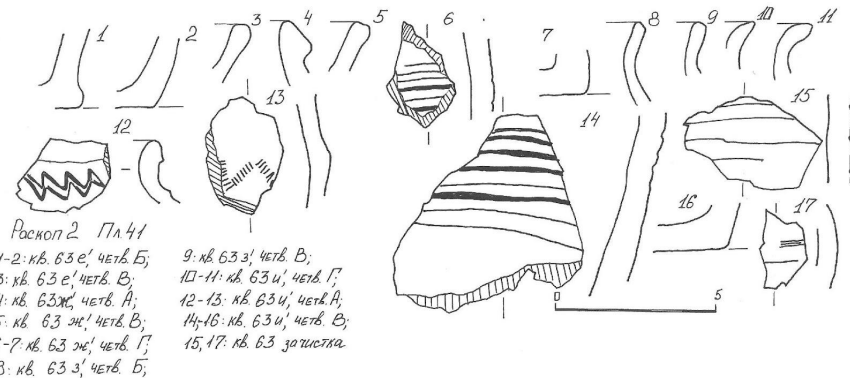 1 2 3 4 5 6 7 8 9 10 11
12 13 14 15 16 17
0 5
Раскоп 2 Пл.41
1-2: кв. 63 е', четв. Б;
3: кв. 63 е', четв. В;
4: кв. 63ж', четв. А;
5: кв. 63 ж', четв. В;
6-7: кв. 63 ж', четв. Г;
8: кв. 63 з', четв. Б;
9: кв. 63 з', четв. В;
10-11: кв. 63 и', четв. Г;
12-13: кв. 63 и', четв. А;
14,16: кв. 63 и', четв. В;
15,17: кв. 63 зачистка